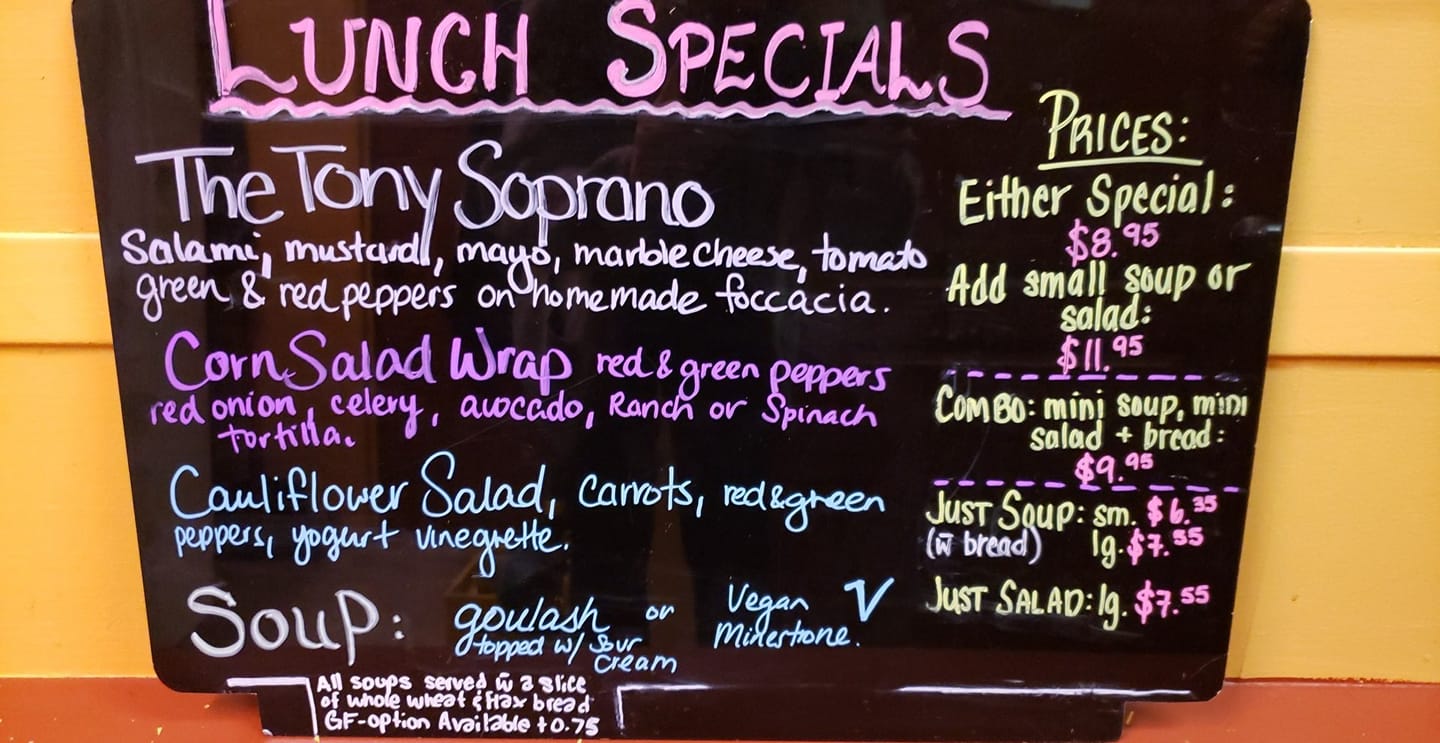 LUNCH SPECIALS
The Tony Soprano
Salami, mustard, mayo, marble cheese, tomato
green & red peppers on homemade foccacia.
Corn Salad Wrap red & green peppers
red onion, celery, avocado, Ranch or Spinach
tortilla.
Cauliflower Salad, carrots, red & green
peppers, yogurt vinegrette.
Soup: goulash or Vegan V
topped w/ Sour Minestrone.
cream
All soups served w̄ a slice
of whole wheat & flax bread
GF-option Available +0.75
PRICES:
Either Special:
$8.95
Add small soup or
salad:
$11.95
COMBO: mini soup, mini
salad + bread:
$9.95
JUST SOUP: sm. $6.35
(w̄ bread) lg. $7.55
JUST SALAD: lg. $7.55